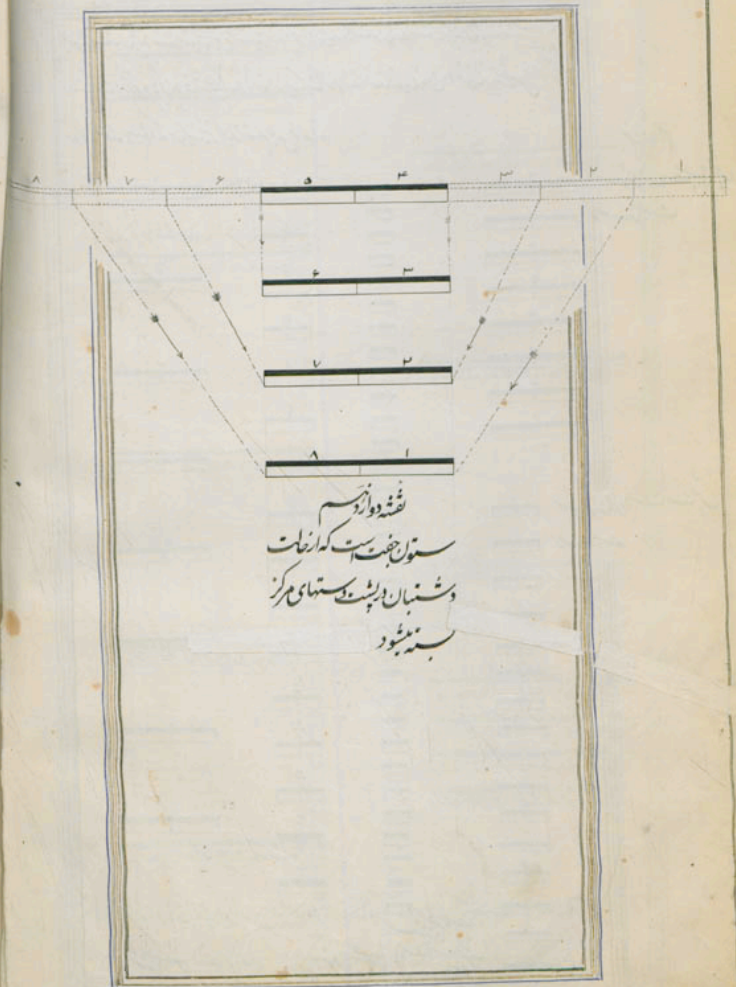 ۸ ۷ ۶ ۵ ۴ ۳ ۲ ۱
۶ ۳
۷ ۲
۸ ۱
نقشه دوازدهم
ستون جفت است که از حالت
دشنبان در پشت دستهای مرکز
بسته میشود